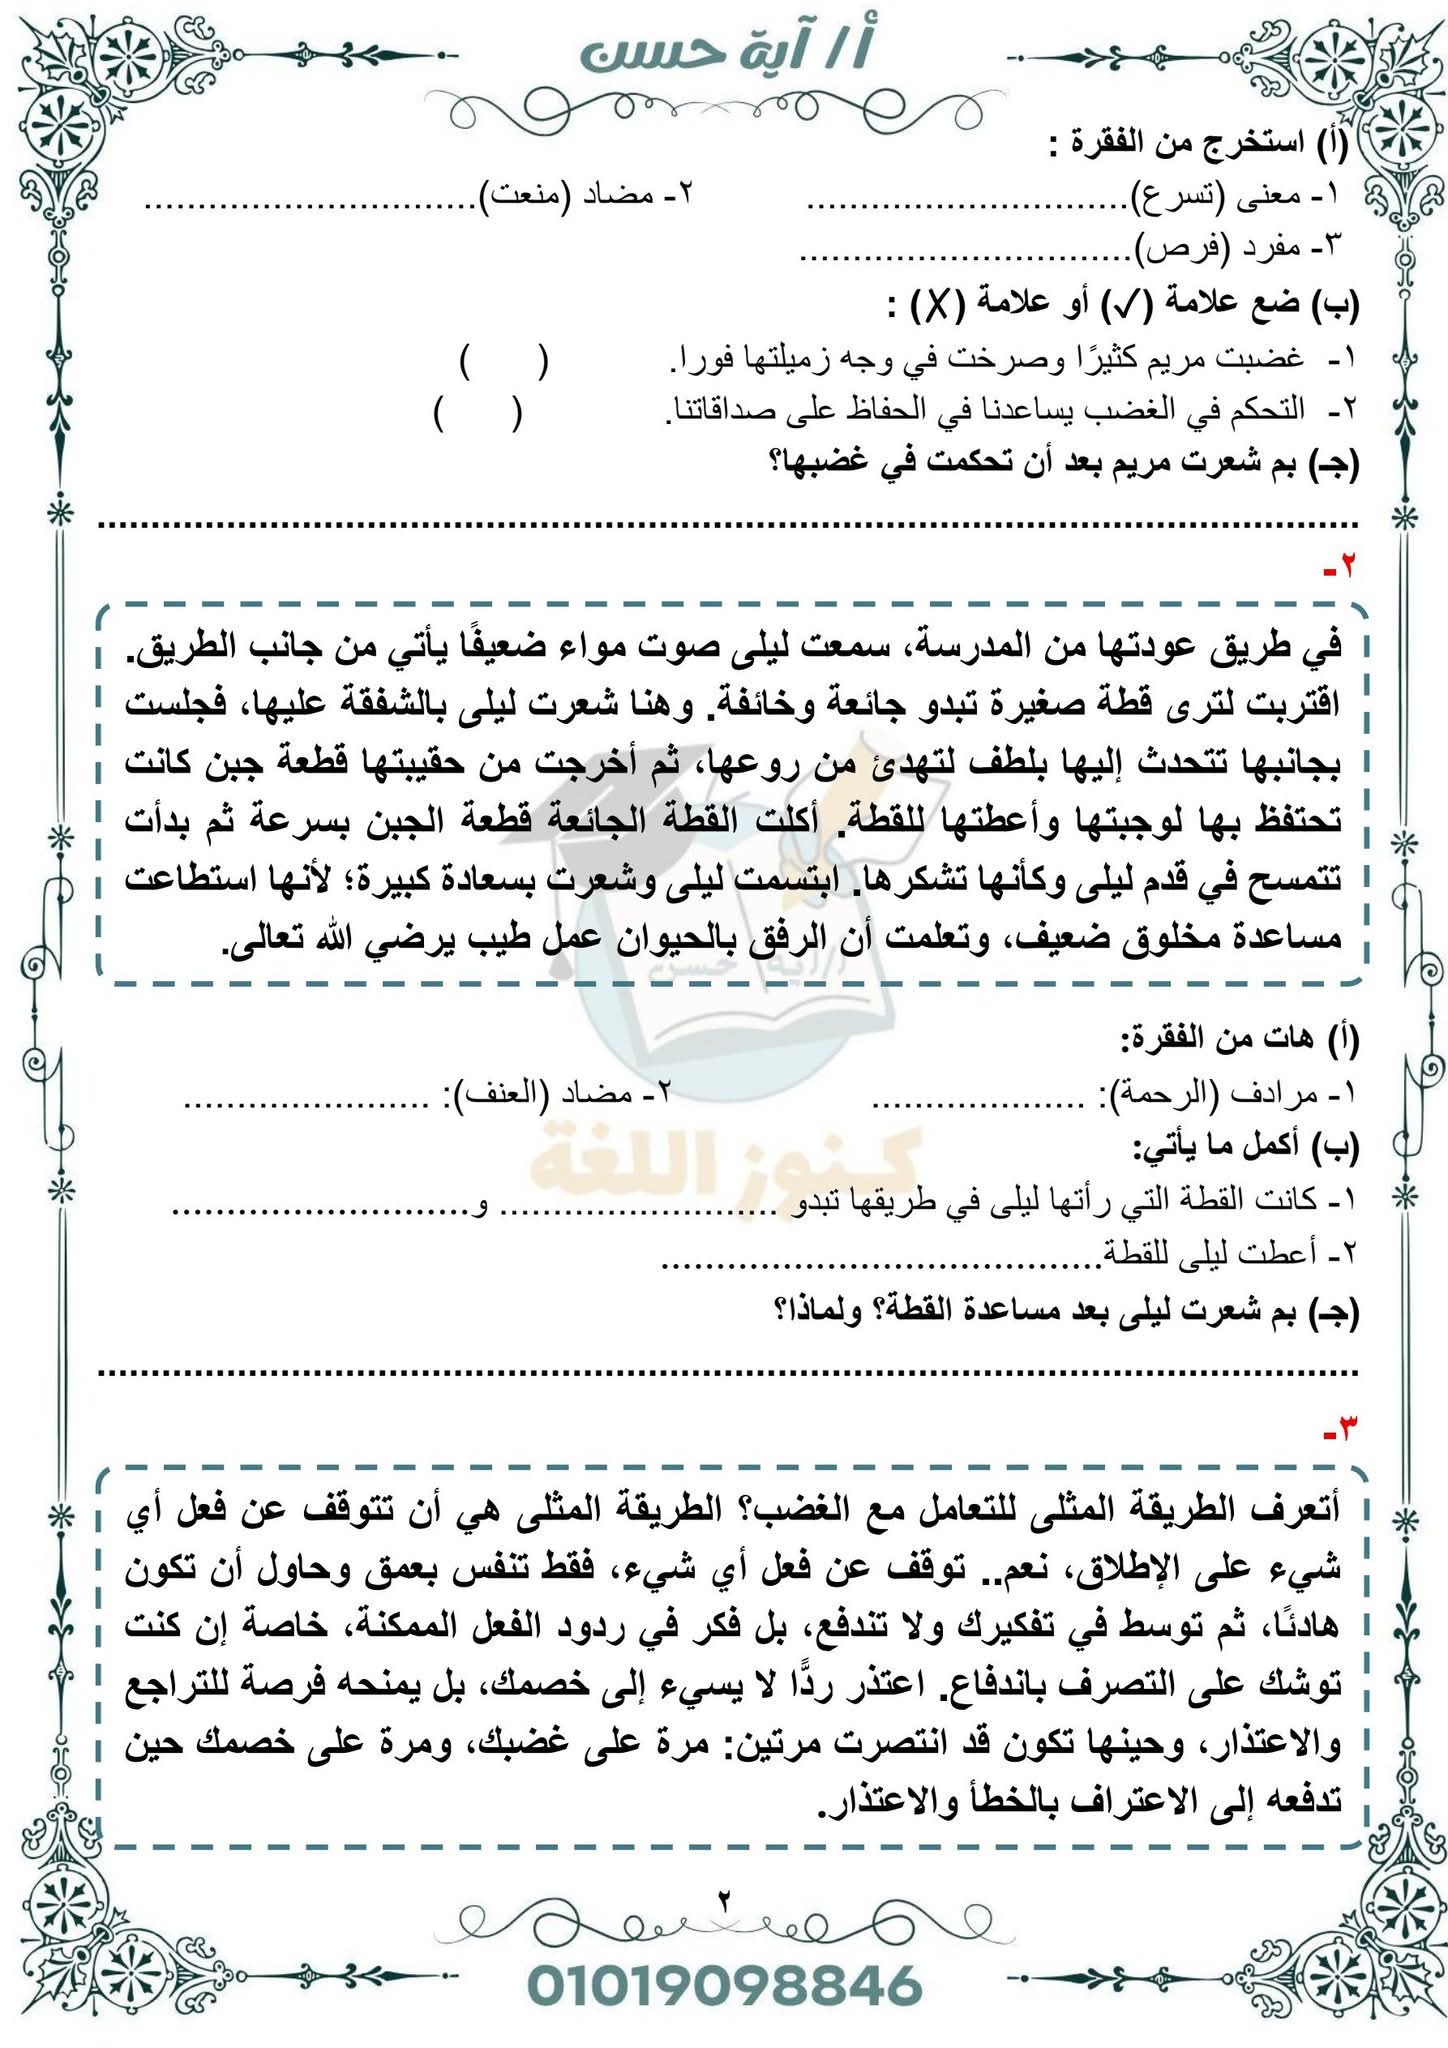 أ/ آية حسن
(أ) استخرج من الفقرة :
١- معنى (تسرع).............................. ٢- مضاد (منعت)...............................
٣- مفرد (فرص)...............................
(ب) ضع علامة (✓) أو علامة (✗) :
١- غضبت مريم كثيرًا وصرخت في وجه زميلتها فورا. ( )
٢- التحكم في الغضب يساعدنا في الحفاظ على صداقاتنا. ( )
(جـ) بم شعرت مريم بعد أن تحكمت في غضبها؟
................................................................................................................
٢-
في طريق عودتها من المدرسة، سمعت ليلى صوت مواء ضعيفًا يأتي من جانب الطريق.
اقتربت لترى قطة صغيرة تبدو جائعة وخائفة. وهنا شعرت ليلى بالشفقة عليها، فجلست
بجانبها تتحدث إليها بلطف لتهدئ من روعها، ثم أخرجت من حقيبتها قطعة جبن كانت
تحتفظ بها لوجبتها وأعطتها للقطة. أكلت القطة الجائعة قطعة الجبن بسرعة ثم بدأت
تتمسح في قدم ليلى وكأنها تشكرها. ابتسمت ليلى وشعرت بسعادة كبيرة؛ لأنها استطاعت
مساعدة مخلوق ضعيف، وتعلمت أن الرفق بالحيوان عمل طيب يرضي الله تعالى.
أ/ آية حسن
(أ) هات من الفقرة:
١- مرادف (الرحمة): .................... ٢- مضاد (العنف): .......................
كنوز اللغة
(ب) أكمل ما يأتي:
١- كانت القطة التي رأتها ليلى في طريقها تبدو .......................... و............................
٢- أعطت ليلى للقطة.........................................
(جـ) بم شعرت ليلى بعد مساعدة القطة؟ ولماذا؟
................................................................................................................
٣-
أتعرف الطريقة المثلى للتعامل مع الغضب؟ الطريقة المثلى هي أن تتوقف عن فعل أي
شيء على الإطلاق، نعم.. توقف عن فعل أي شيء، فقط تنفس بعمق وحاول أن تكون
هادئًا، ثم توسط في تفكيرك ولا تندفع، بل فكر في ردود الفعل الممكنة، خاصة إن كنت
توشك على التصرف باندفاع. اعتذر ردًّا لا يسيء إلى خصمك، بل يمنحه فرصة للتراجع
والاعتذار، وحينها تكون قد انتصرت مرتين: مرة على غضبك، ومرة على خصمك حين
تدفعه إلى الاعتراف بالخطأ والاعتذار.
٢
01019098846